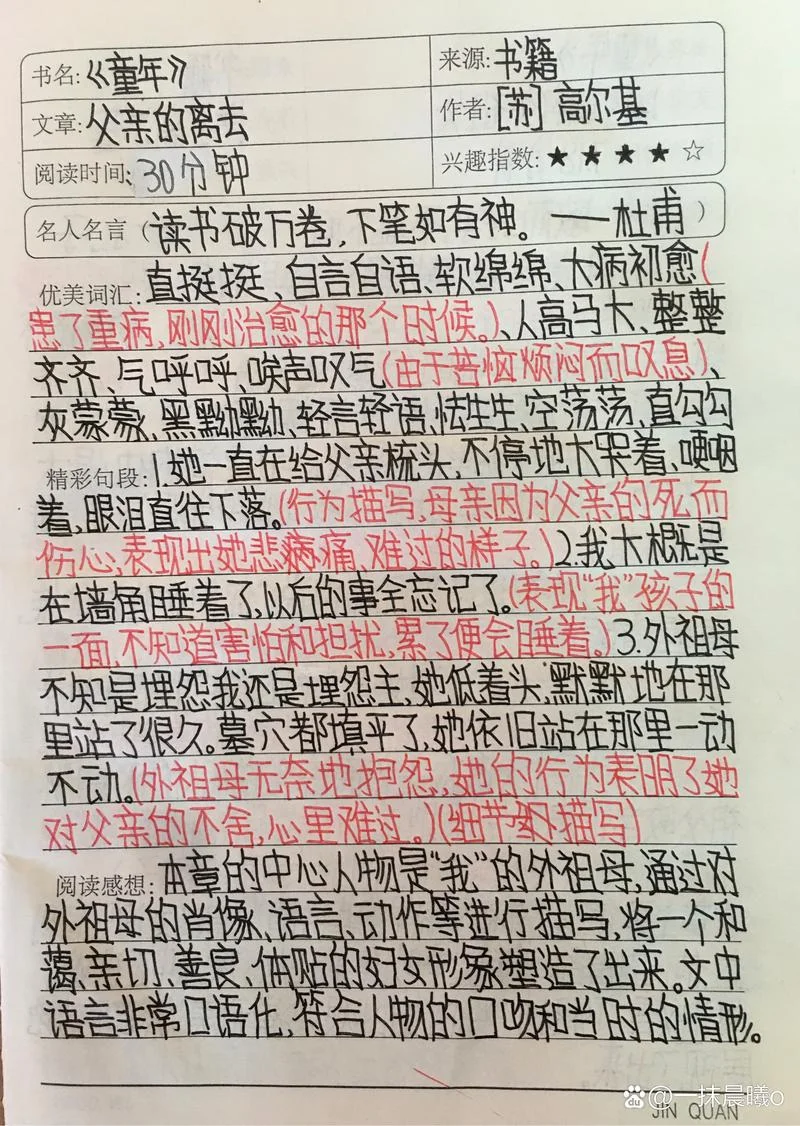 书名:《童年》 来源:书籍
文章:父亲的离去 作者:[苏]高尔基
阅读时间:30分钟 兴趣指数:★★★★☆
名人名言(读书破万卷,下笔如有神。——杜甫)
优美词汇:直挺挺、自言自语、软绵绵、大病初愈(
患了重病,刚刚治愈的那个时候。)、人高马大、整整
齐齐、气呼呼、唉声叹气(由于苦恼烦闷而叹息)、
灰蒙蒙、黑黝黝、轻言轻语、怯生生、空荡荡、直勾勾
精彩句段:1.她一直在给父亲梳头,不停地大哭着、哽咽
着,眼泪直往下落。(行为描写,母亲因为父亲的死而
伤心,表现出她悲痛、难过的样子。)2.我大概是
在墙角睡着了,以后的事全忘记了。(表现“我”孩子的
一面,不知道害怕和担扰,累了便会睡着。)3.外祖母
不知是埋怨我还是埋怨主,她低着头,默默地在那
里站了很久。墓穴都填平了,她依旧站在那里一动
不动。(外祖母无奈地抱怨,她的行为表明了她
对父亲的不舍,心里难过。)(细节处描写)
阅读感想:本章的中心人物是“我”的外祖母,通过对
外祖母的肖像、语言、动作等进行描写,将一个和
蔼、亲切、善良、体贴的妇女形象塑造了出来。文中
语言非常口语化,符合人物的口吻和当时的情形。
JIN QUAN
Bai du @一抹晨曦o